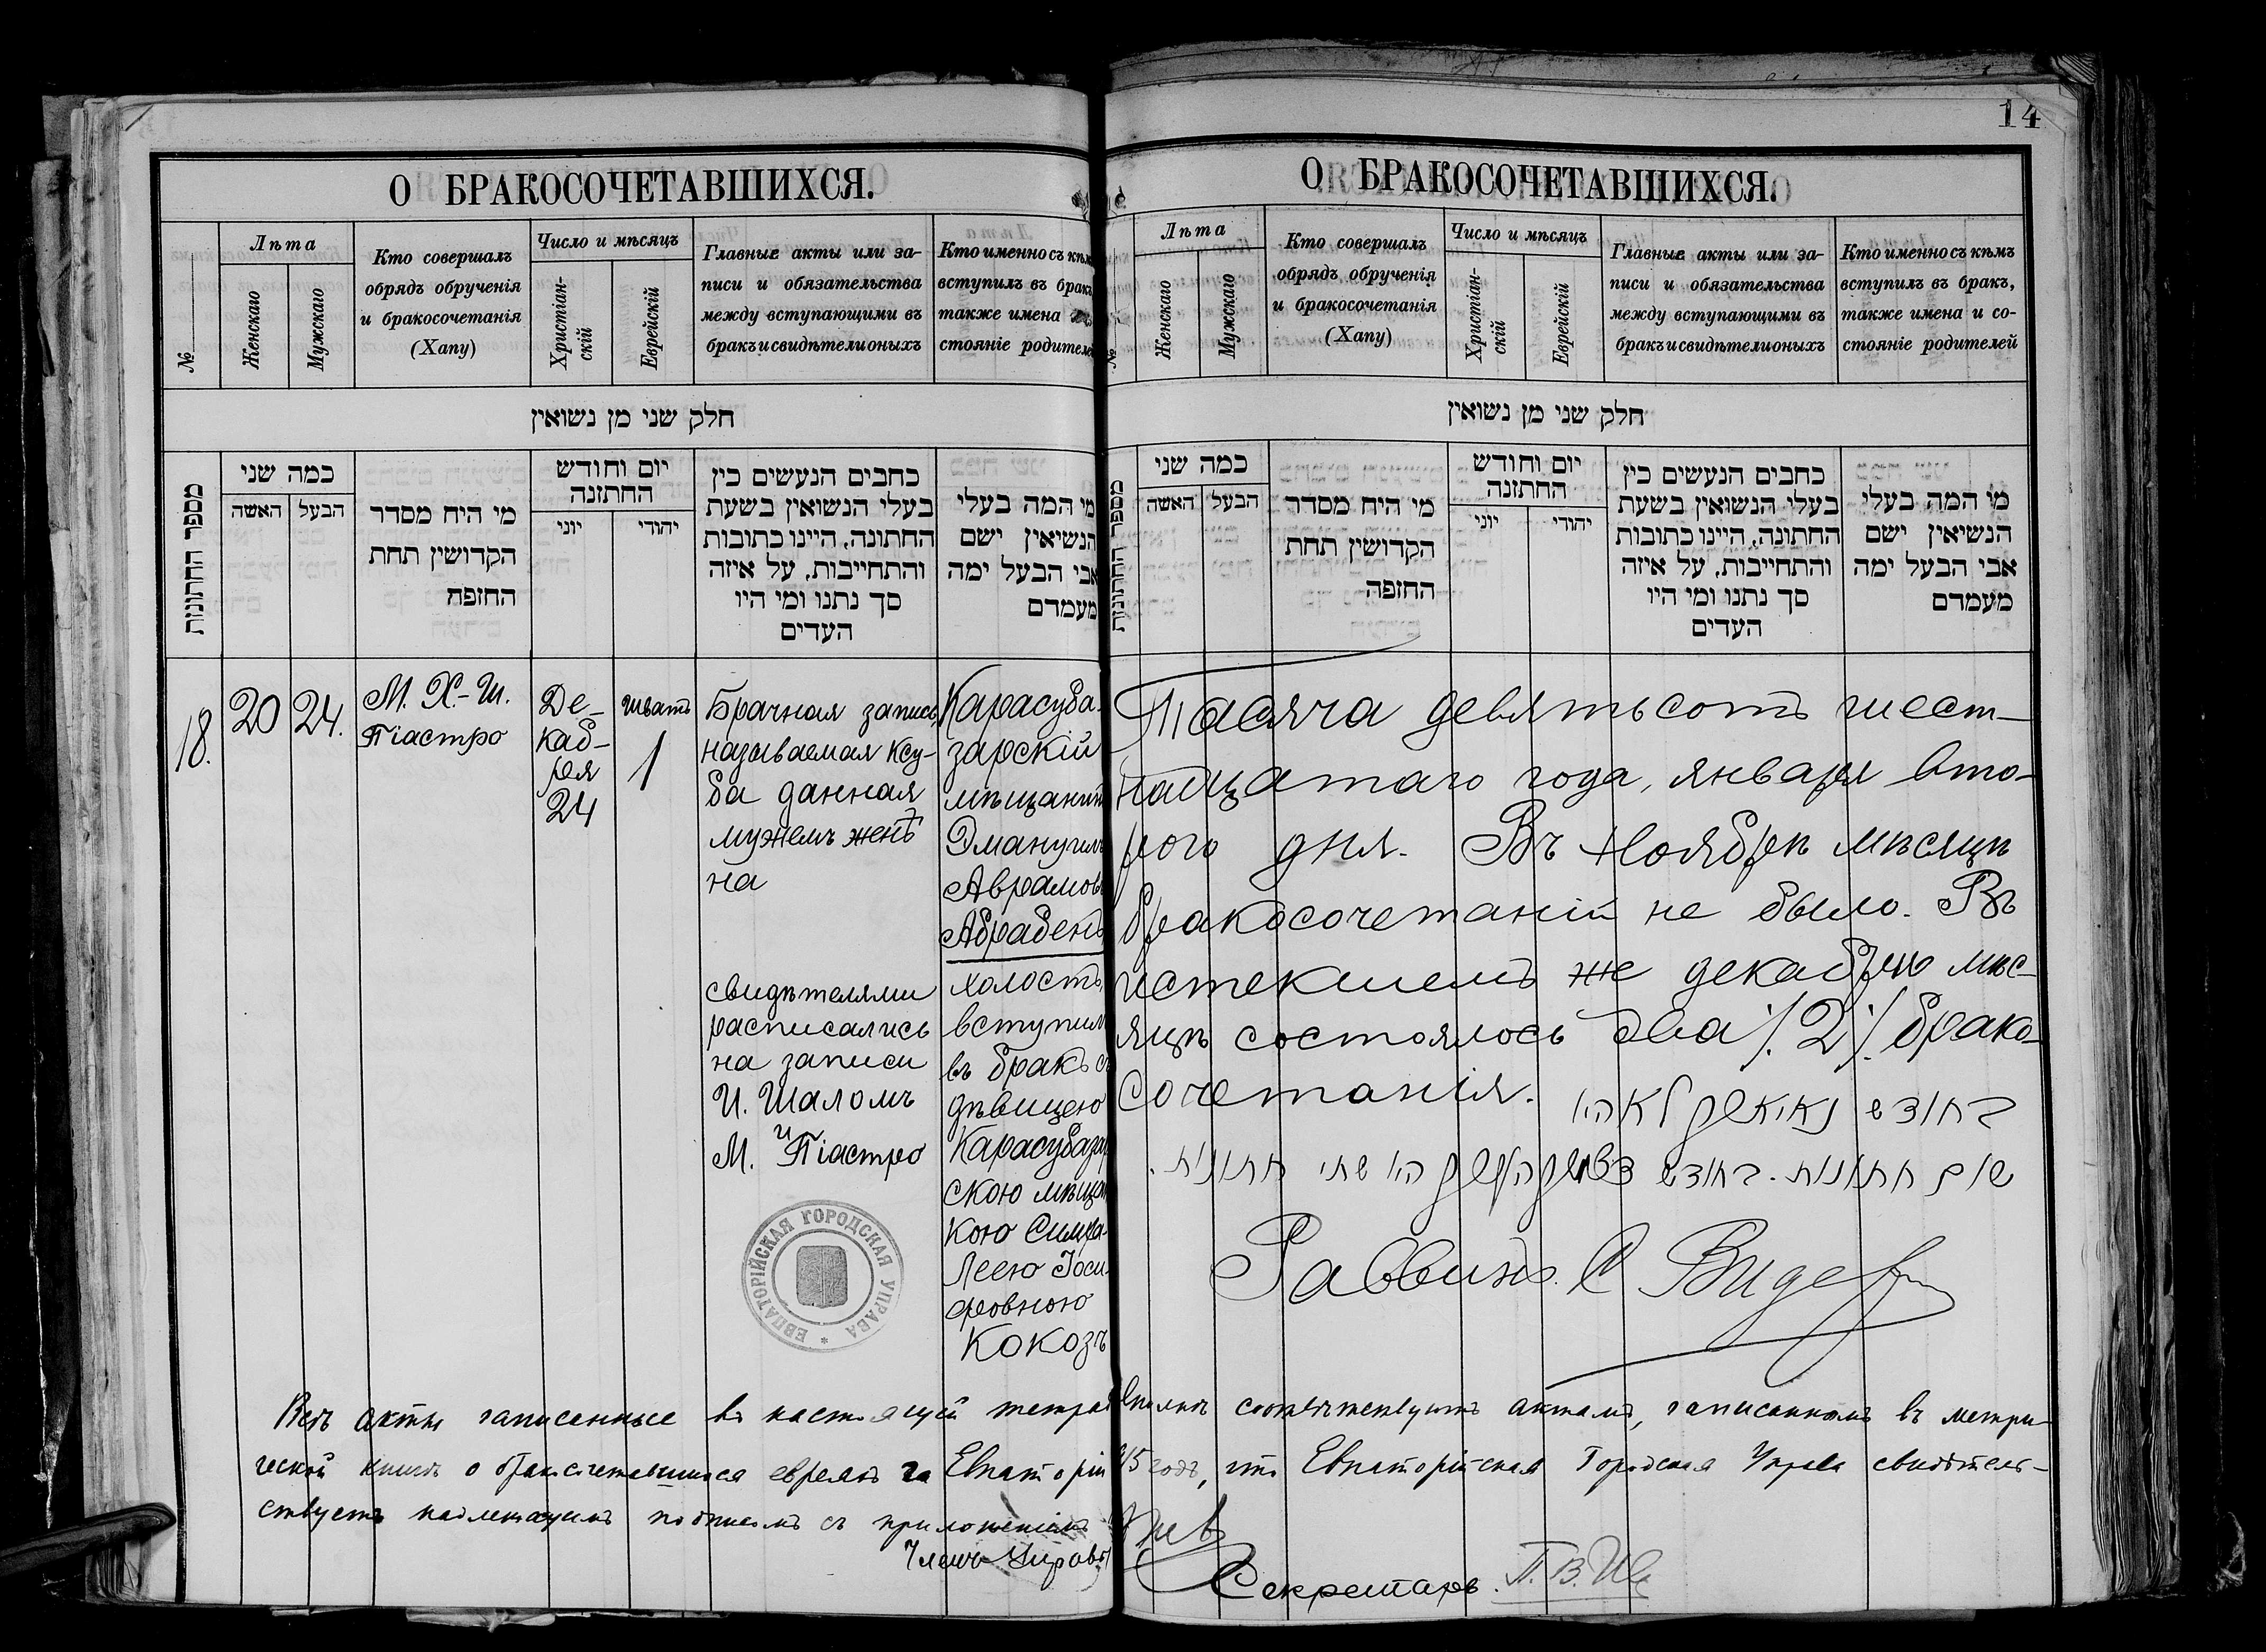 О БРАКОСОЧЕТАВШИХСЯ.
№
Лѣта
Женскаго
Мужскаго
Кто совершалъ
обрядъ обрученія
и бракосочетанія
(Хапу)
Число и мѣсяцъ
Христіан-
скій
Еврейскій
Главные акты или за-
писи и обязательства
между вступающими въ
бракъ и свидѣтели оныхъ
Кто именно съ кѣмъ
вступилъ въ бракъ
также имена
стояніе родителей
חלק שני מן נשואין
מספר החתונות
כמה שני
האשה
הבעל
מי היח מסדר
הקדושין תחת
החופח
יום וחודש
החתונה
יוני
יהודי
כתבים הנעשים בין
בעלי הנשואין בשעת
החתונה, היינו כתובות
והתחייבות, על איזה
סך נתנו ומי היו
העדים
מי המה בעלי
הנשיאין ישם
אבי הבעל ימה
מעמדם
18.
20
24.
М. Х.-Ш.
Піастро
Де-
каб-
ря
24
шватъ
1
Брачная запись
называемая ксу-
ба данная
мужемъ женѣ
на
свидѣтелями
расписались
на записи
И. Шаломъ
и
М. Піастро
ЕВПАТОРІЙСКАЯ ГОРОДСКАЯ УПРАВА
Карасуба-
зарскій
мѣщанинъ
Эмануилъ
Аврамовъ
Абрабенъ
холостъ
вступилъ
въ бракъ съ
дѣвицею
Карасубазар
скою мѣщан
кою Симха-
Леею Іоси-
фовною
Кокозъ
14
О БРАКОСОЧЕТАВШИХСЯ.
№
Лѣта
Женскаго
Мужскаго
Кто совершалъ
обрядъ обрученія
и бракосочетанія
(Хапу)
Число и мѣсяцъ
Христіан-
скій
Еврейскій
Главные акты или за-
писи и обязательства
между вступающими въ
бракъ и свидѣтели оныхъ
Кто именно съ кѣмъ
вступилъ въ бракъ,
также имена и со-
стояніе родителей
חלק שני מן נשואין
מספר החתונות
כמה שני
האשה
הבעל
מי היח מסדר
הקדושין תחת
החופה
יום וחודש
החתונה
יוני
יהודי
כתבים הנעשים בין
בעלי הנשואין בשעת
החתונה, היינו כתובות
והתחייבות, על איזה
סך נתנו ומי היו
העדים
מי המה בעלי
הנשיאין ישם
אבי הבעל ימה
מעמדם
Тысяча девятьсотъ шест-
надцатаго года, января вто-
рого дня. Въ Ноябрѣ мѣсяцѣ
бракосочетаній не было. Въ
истекшемъ же декабрѣ мѣс-
яцѣ состоялось два /. 2 /. брако-
сочетанія.
בחודש נאיאבר לא היו
שום חתונות. בחודש דעקאבער היו שתי חתונות.
Раввинъ. С Видер
Всѣ акты записанные въ настоящей тетрад вполнѣ соотвѣтствуютъ актамъ, записаннымъ въ метри-
ческой книгѣ о бракосочетавшихся евреяхъ за Евпаторіи 915 годъ, что Евпаторійская Городская Управа свидѣтель-
ствуетъ надлежащимъ подписомъ съ приложеніемъ
Членъ Управы
Секретарь